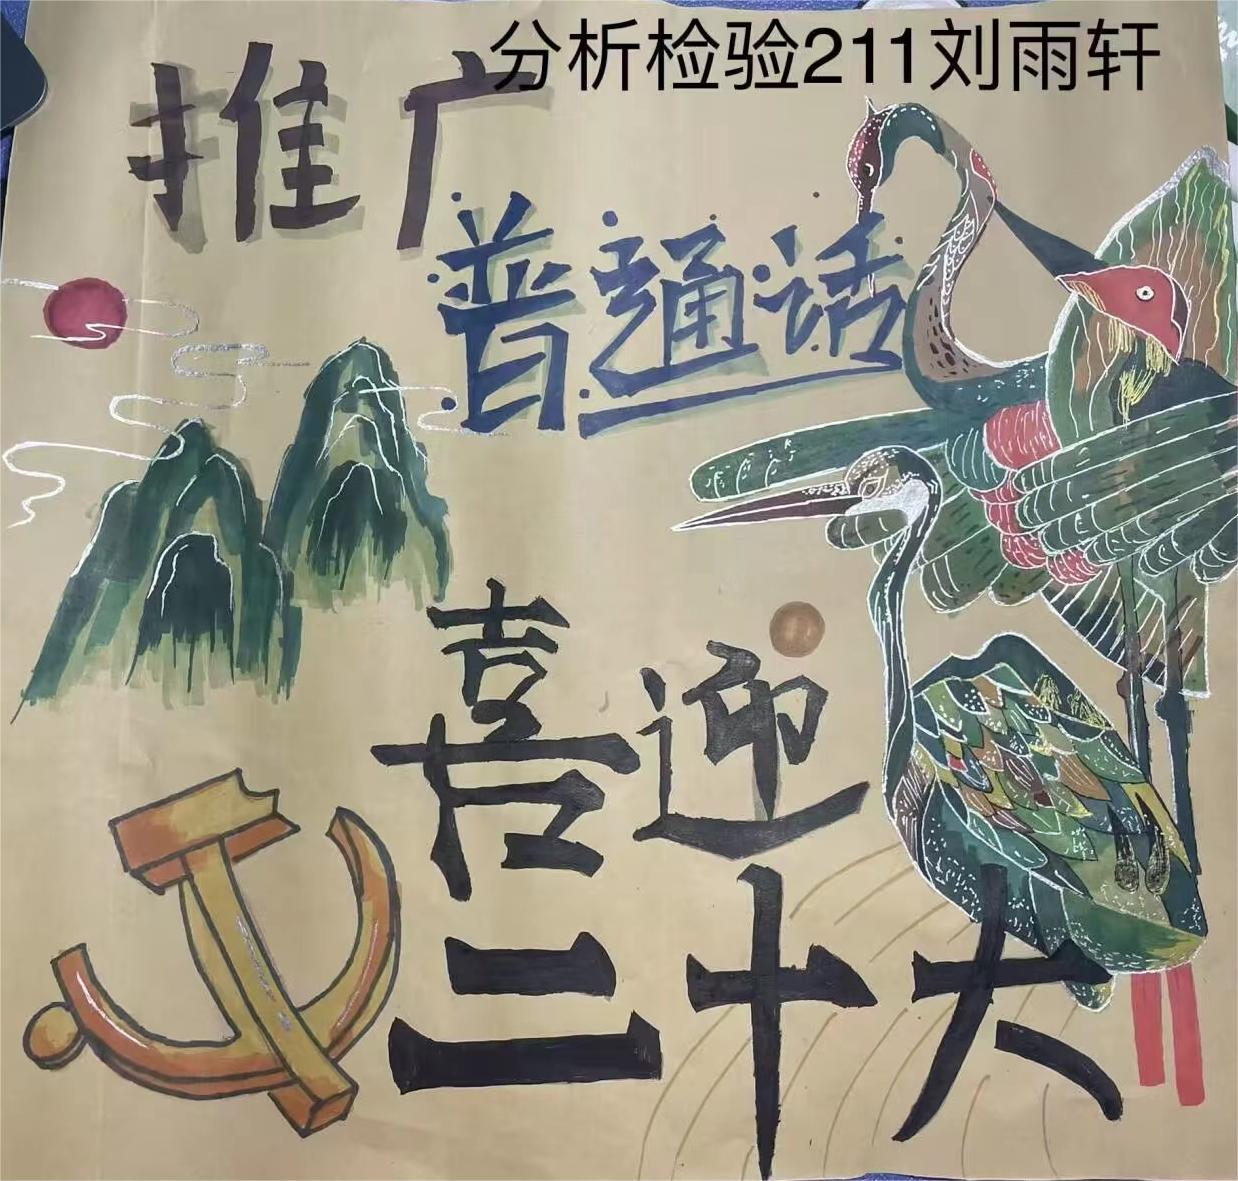 分析检验211刘雨轩
推广
普通话
喜迎
二十大